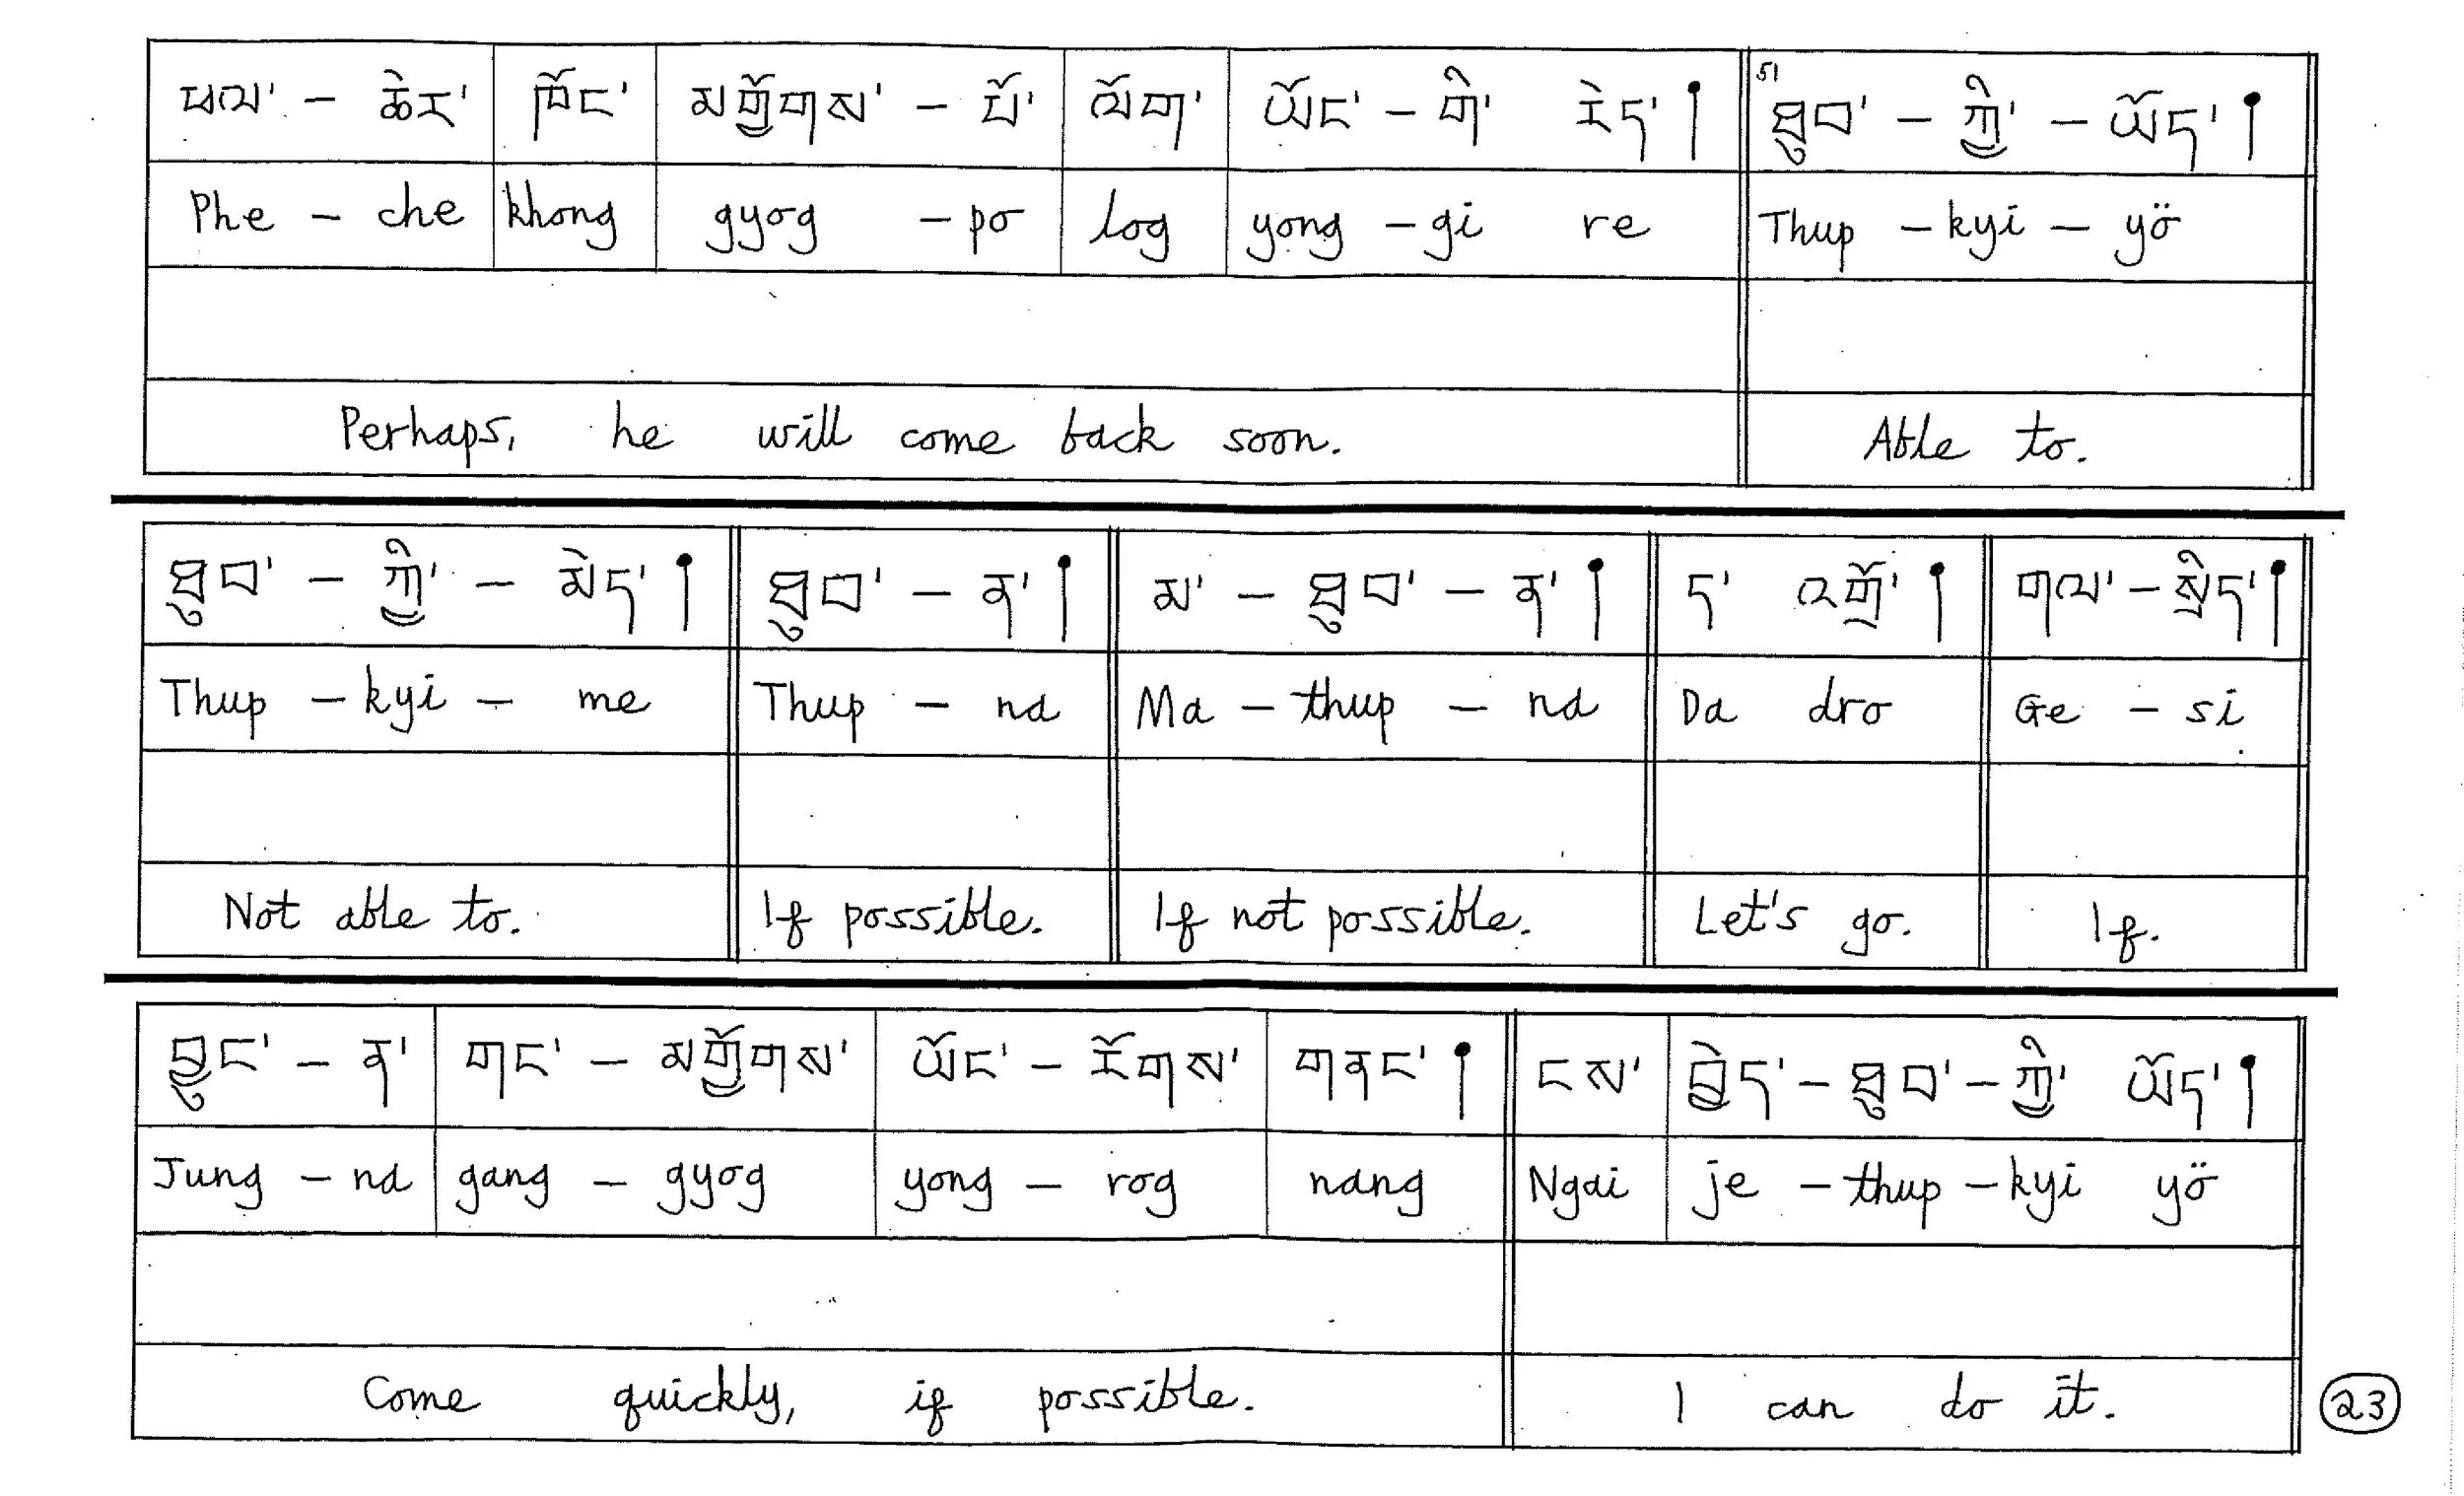 ཕལ་ - ཆེར་ ཁོང་ མགྱོགས་ - པོ་ ལོག་ ཡོང་ - གི་ རེད་། 51 ཐུབ་ - ཀྱི་ - ཡོད་།
Phe - che khong gyog - po log yong - gi re Thup - kyi - yö
Perhaps, he will come back soon. Able to.
ཐུབ་ - ཀྱི་ - མེད་། ཐུབ་ - ན་། མ་ - ཐུབ་ - ན་། ད་ འགྲོ་། གལ་ - སྲིད་།
Thup - kyi - me Thup - na Ma - thup - na Da dro Ge - si
Not able to. If possible. If not possible. Let's go. If.
བྱུང་ - ན་ གང་ - མགྱོགས་ ཡོང་ - རོགས་ གནང་། ངས་ བྱེད་ - ཐུབ་ - ཀྱི་ ཡོད་།
Jung - na gang - gyog yong - rog nang Ngai je - thup - kyi yö
Come quickly, if possible. I can do it.
23